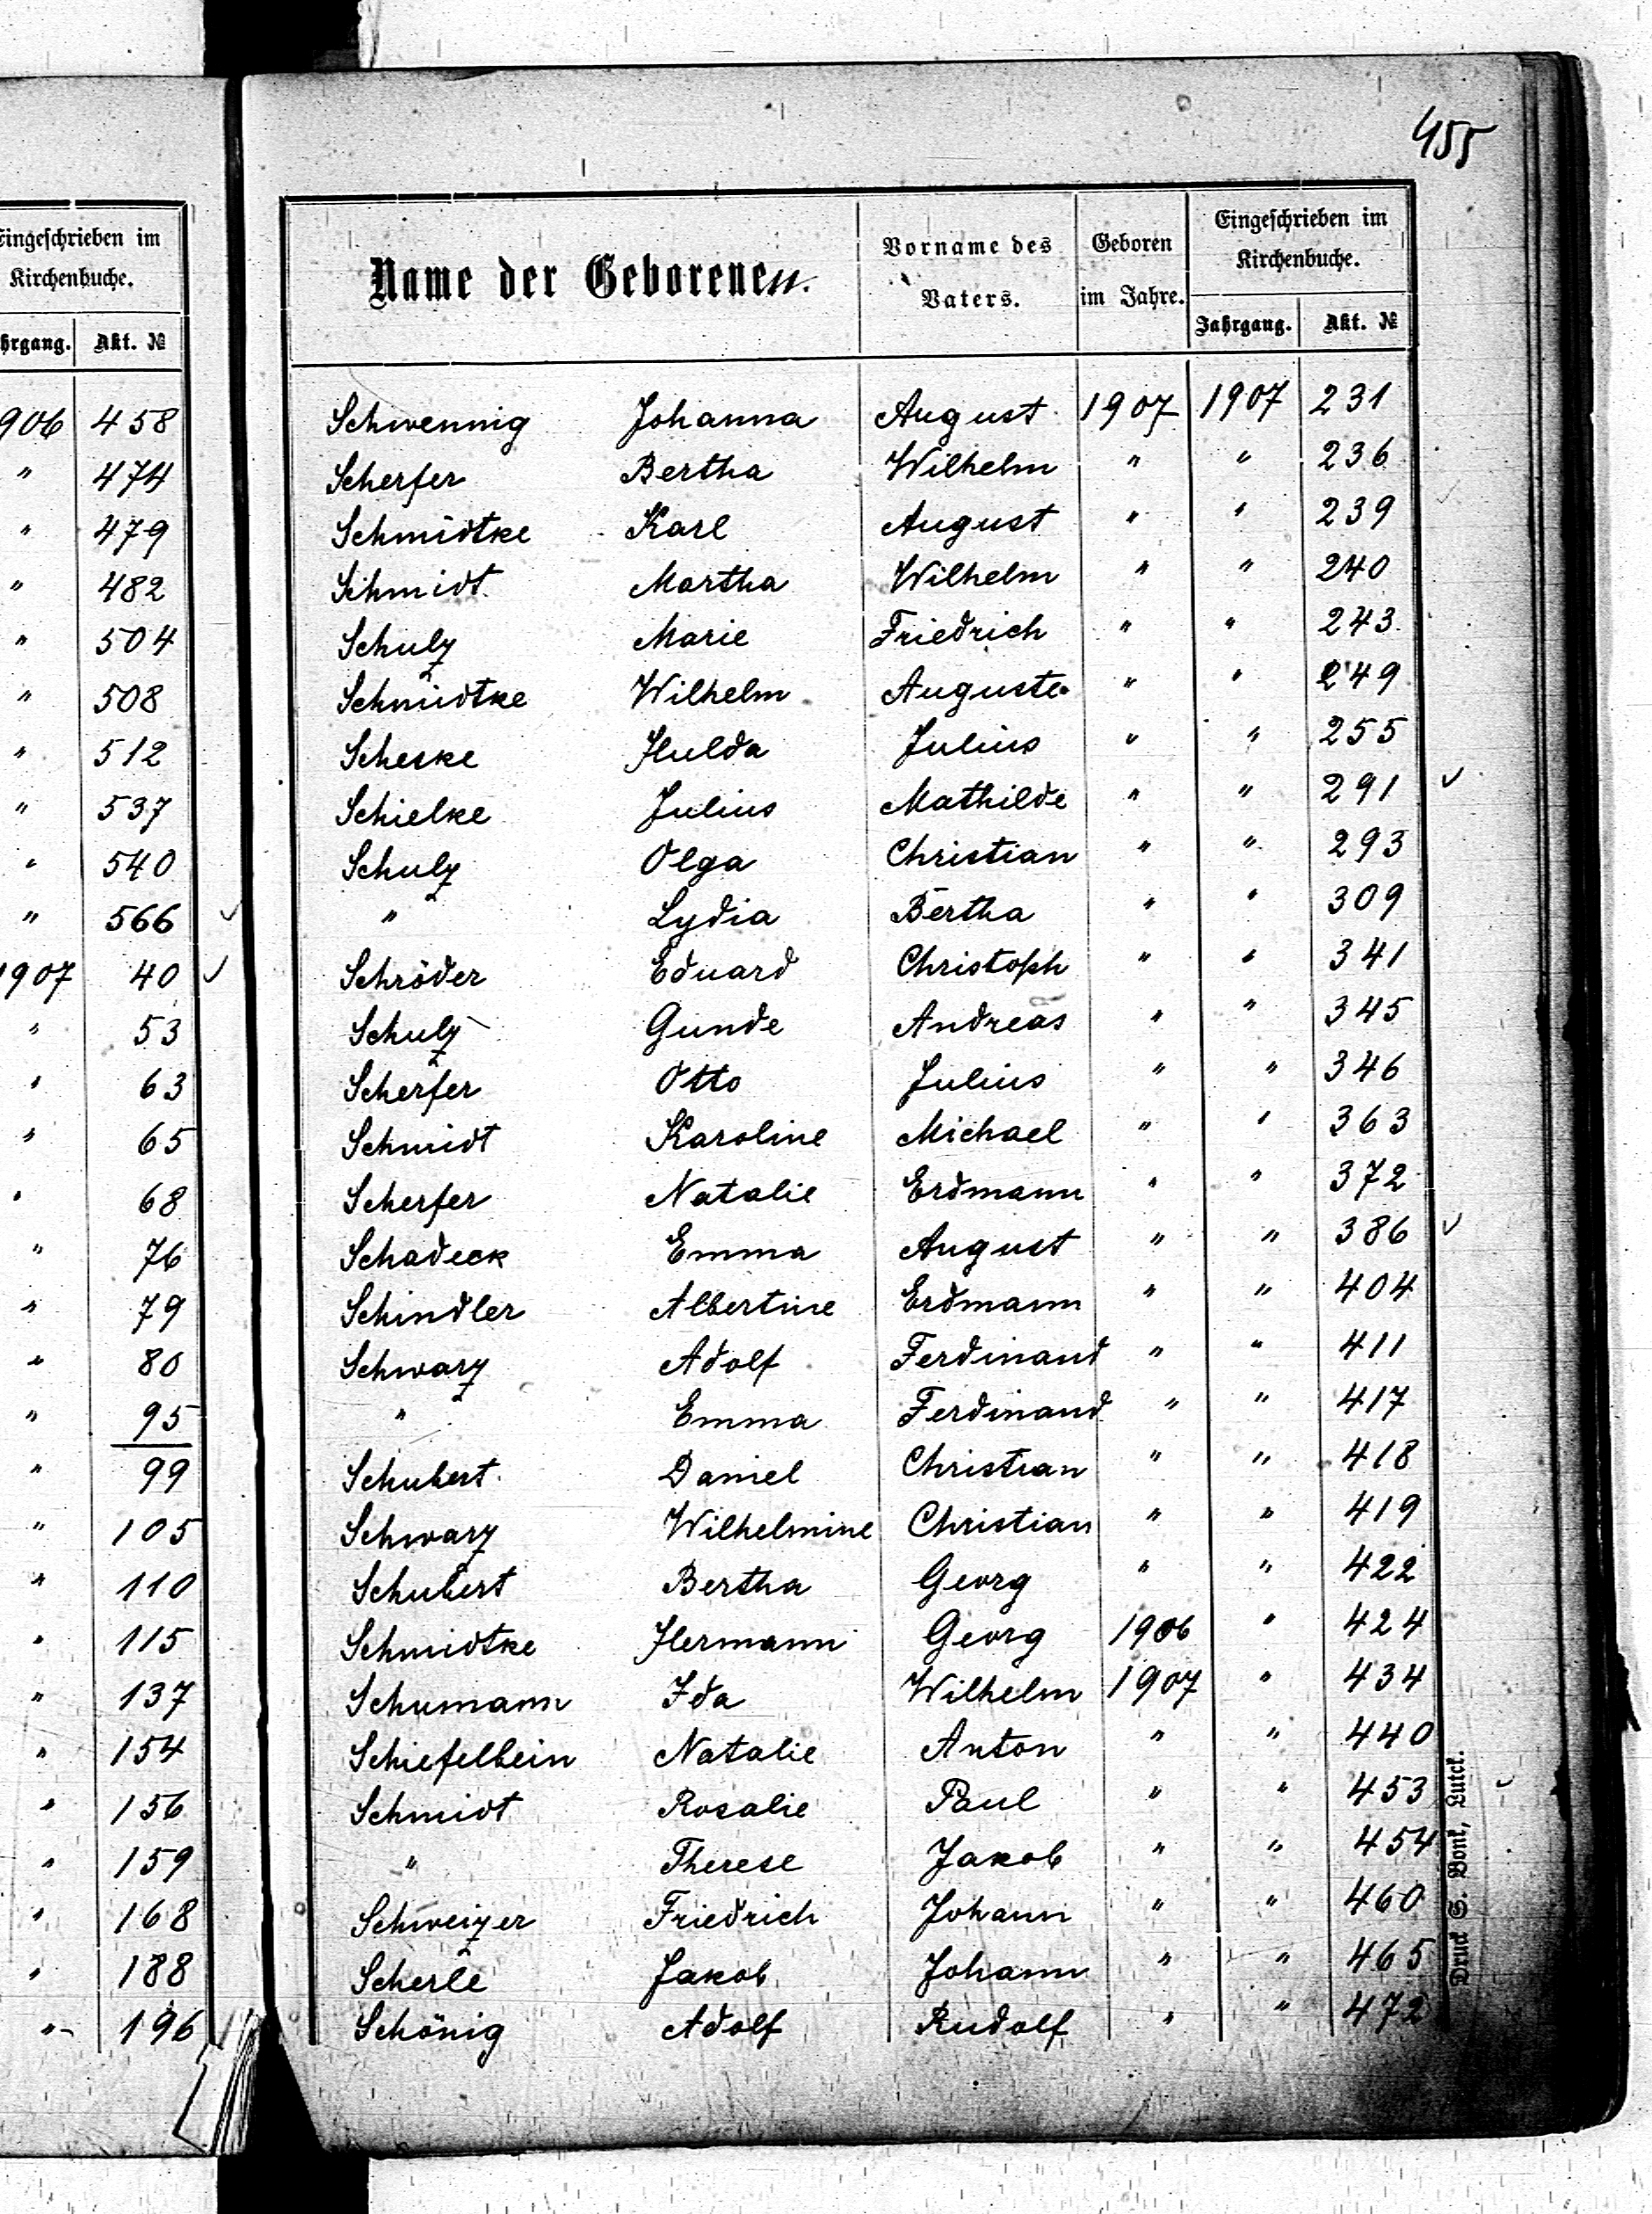 455
Eingeschrieben im
Kirchenbuche.
hrgang. Akt. №
906 458
" 474
" 479
" 482
" 504
" 508
" 512
" 537
" 540
" 566 ✓
1907 40 ✓
" 53
" 63
" 65
" 68
" 76
" 79
" 80
" 95
" 99
" 105
" 110
" 115
" 137
" 154
" 156
" 159
" 168
" 188
" 196
Name der Geborenen. Vorname des Vaters. Geboren im Jahre. Eingeschrieben im Kirchenbuche.
Jahrgang. Akt. №
Schwennig Johanna August 1907 1907 231
Scherfer Bertha Wilhelm " " 236
Schmidtke Karl August " " 239
Schmidt Martha Wilhelm " " 240
Schulz Marie Friedrich " " 243
Schmidtke Wilhelm Auguste " " 249
Scheske Hulda Julius " " 255
Schielke Julius Mathilde " " 291 ✓
Schulz Olga Christian " " 293
" Lydia Bertha " " 309
Schröder Eduard Christoph " " 341
Schulz Gunde Andreas " " 345
Scherfer Otto Julius " " 346
Schmidt Karoline Michael " " 363
Scherfer Natalie Erdmann " " 372
Schadeck Emma August " " 386 ✓
Schindler Albertine Erdmann " " 404
Schwarz Adolf Ferdinand " " 411
" Emma Ferdinand " " 417
Schubert Daniel Christian " " 418
Schwarz Wilhelmine Christian " " 419
Schubert Bertha Georg " " 422
Schmidtke Hermann Georg 1906 " 424
Schumann Ida Wilhelm 1907 " 434
Schiefelbein Natalie Anton " " 440
Schmidt Rosalie Paul " " 453 ✓
" Therese Jakob " " 454
Schweizer Friedrich Johann " " 460
Scherle Jakob Johann " " 465
Schönig Adolf Rudolf " " 472
Druck S. Bonk, Lutck.